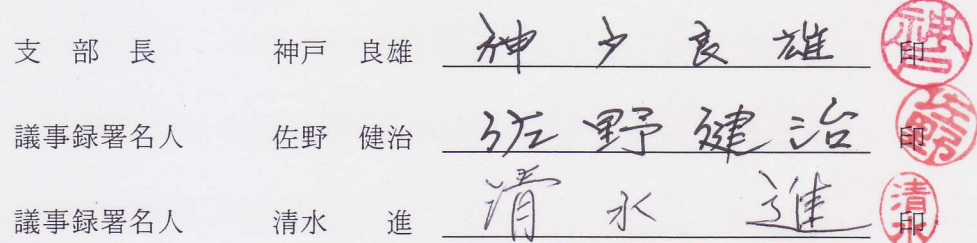 支　部　長　神戸　良雄　神戸良雄　印　神戸
議事録署名人　佐野　健治　佐野健治　印　佐野
議事録署名人　清水　進　清水　進　印　清水